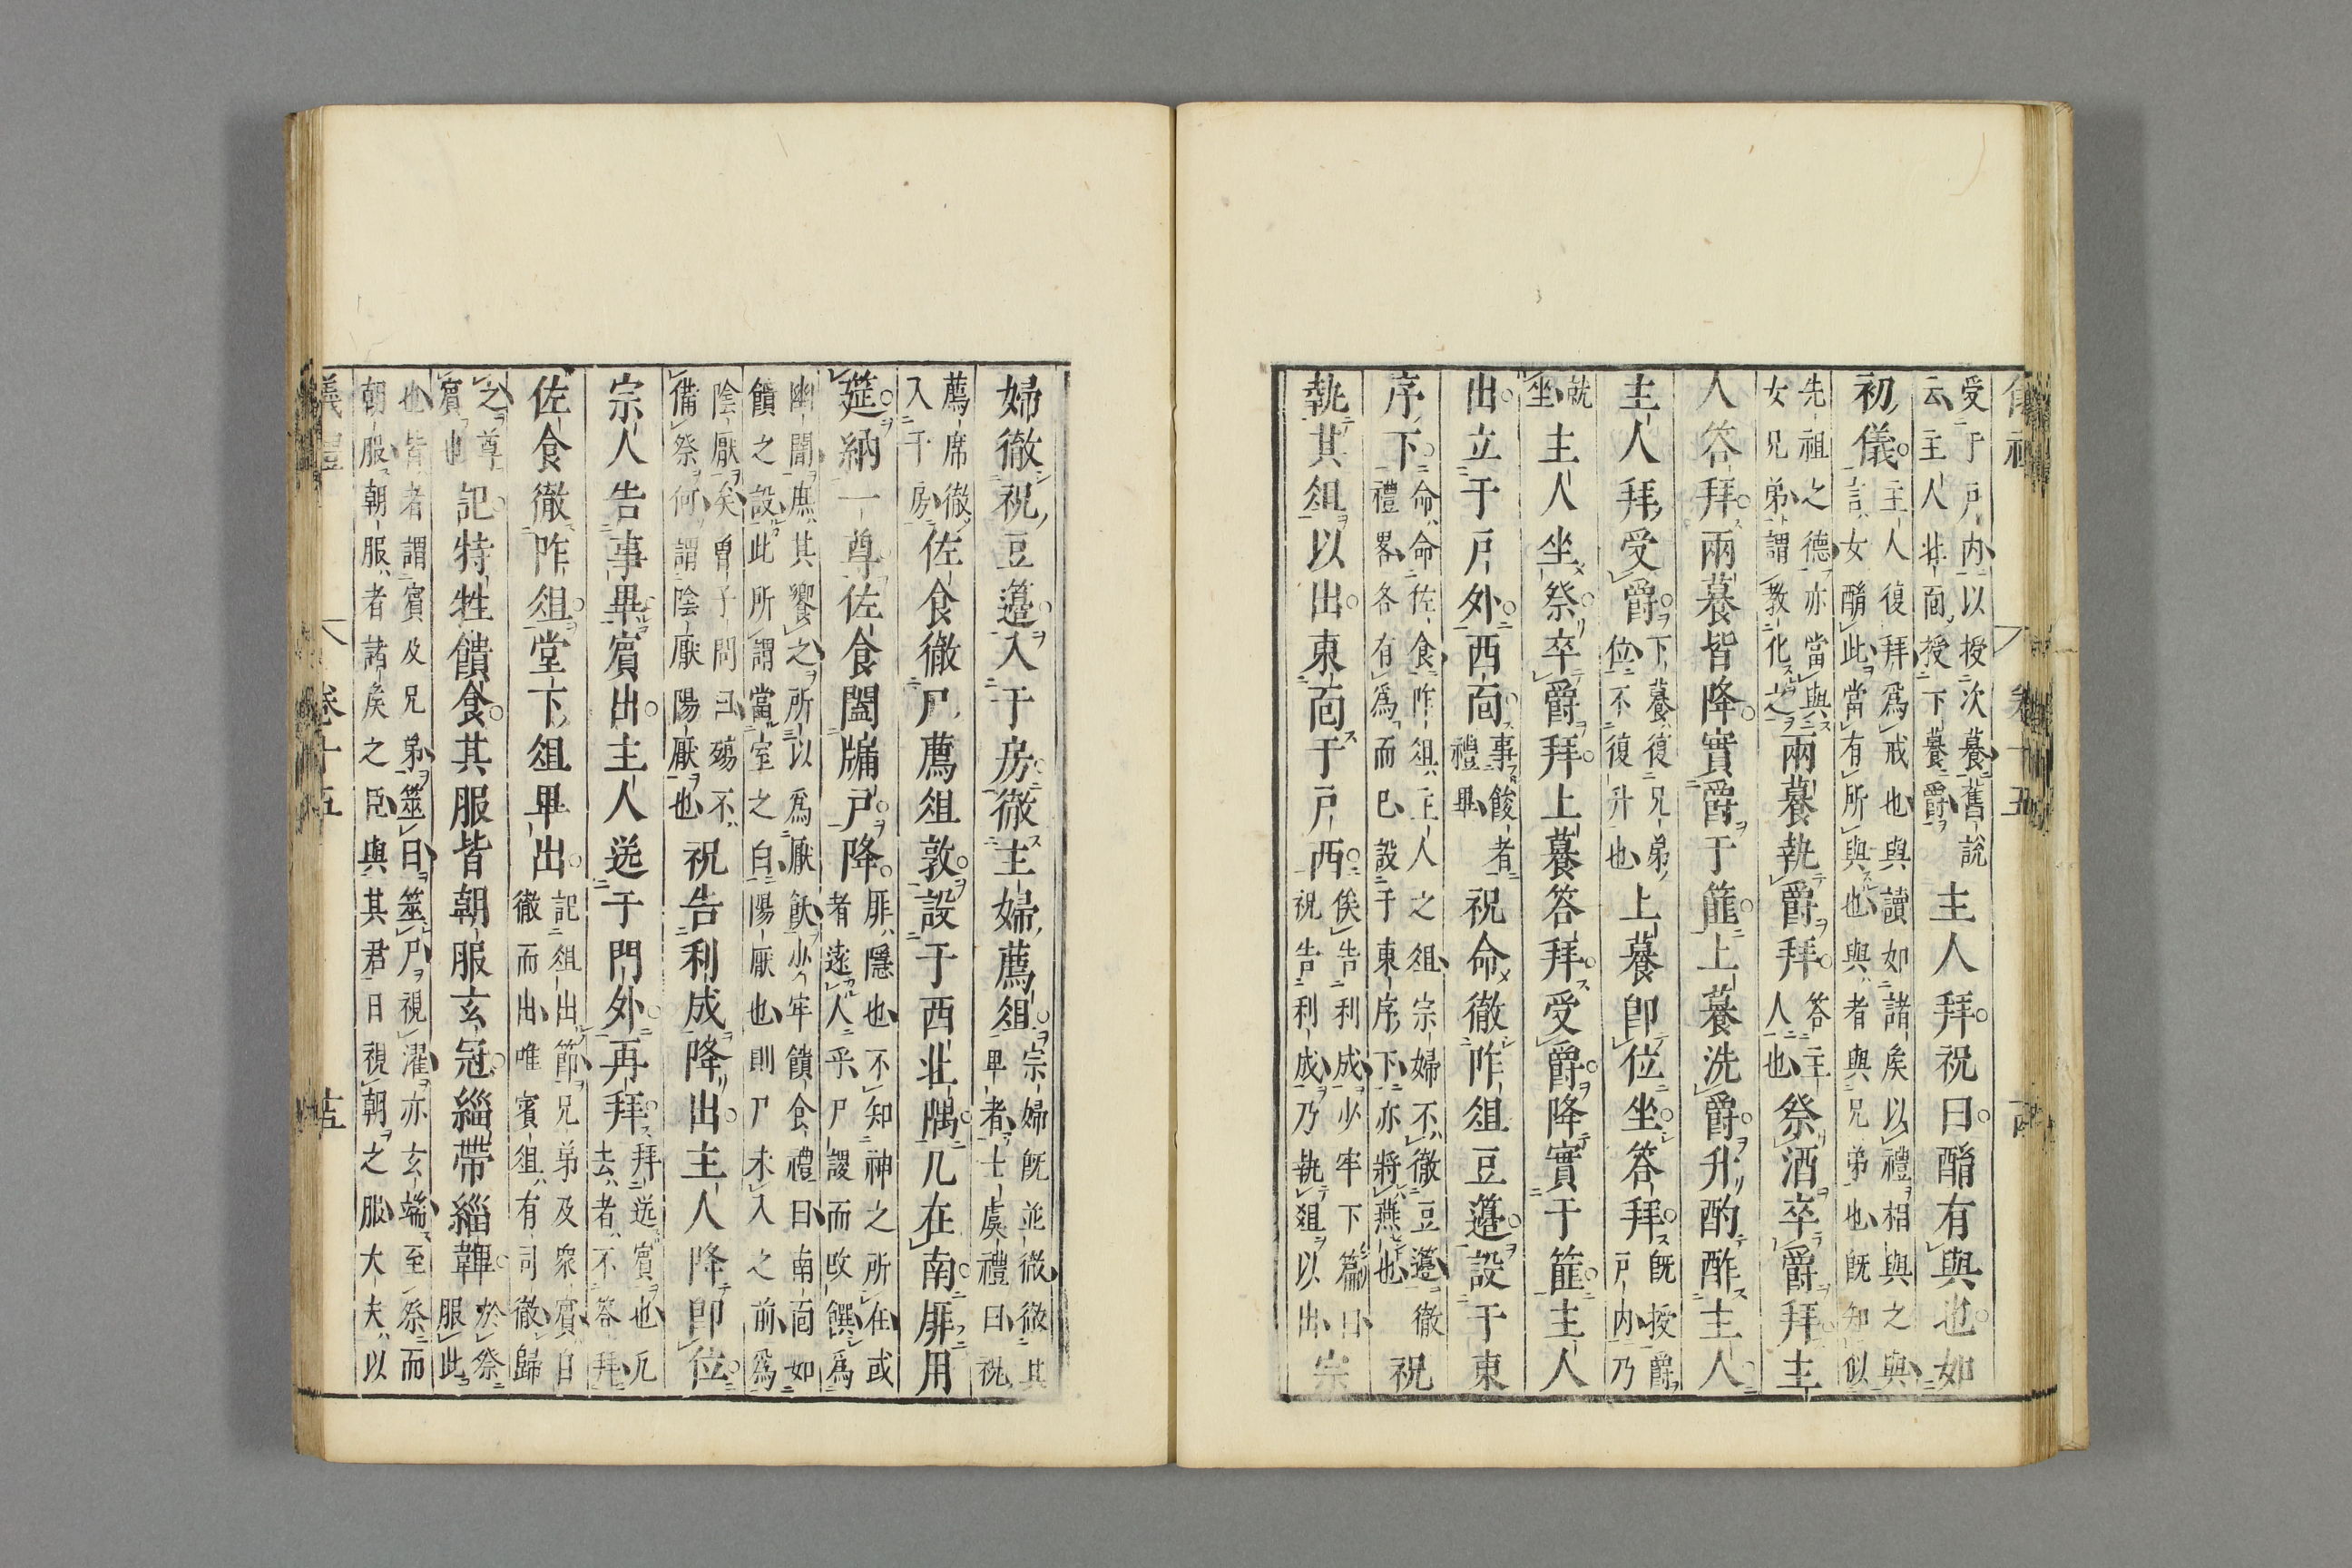 受于戸内以授次䕩舊說云主人北面授下䕩爵主人拜祝曰酳有與也如
初儀主人復拜爲戒也與讀如諸矦以禮相與之與言女酳此當有所與也與者與兄弟也既知似
先祖之德亦當與女兄弟謂教化之兩䕩執爵拜答主人也祭酒卒爵拜主
人答拜兩䕩皆降實爵于篚上䕩洗爵升酌酢主人
主人拜受爵下䕩復兄弟位不復升也上䕩卽位坐答拜既授爵戸内乃
就坐主人坐祭卒爵拜上䕩答拜受爵降實于篚主人
出立于戸外西靣事餕者禮畢祝命徹阼俎豆籩設于東
序下命命佐食阼俎主人之俎宗婦不徹豆籩徹禮畧各有爲而已設于東序下亦將燕也祝
執其俎以出東靣于戸西俟告利成少牢下篇曰祝告利成乃執俎以出宗
婦徹祝豆籩入于房徹主婦薦俎宗婦既並徹徹其卑者士虞禮曰祝
薦席徹入于房佐食徹尸薦俎敦設于西北隅几在南厞用
筵納一尊佐食闔牖戸降厞隱也不知神之所在或者遠人乎尸謖而改饌爲
幽闇庶其饗之所以爲厭飫少牢饋食禮曰南靣如饋之設此所謂當室之白陽厭也則尸未入之前爲
陰厭矣曾子問曰殤不備祭何謂陰厭陽厭也祝告利成降出主人降卽位
宗人告事畢賓出主人送于門外再拜拜送賓也凡去者不答拜
佐食徹阼俎堂下俎畢出記俎出節兄弟及衆賓自徹而出唯賓俎有司徹歸
之尊賓也記特牲饋食其服皆朝服玄冠緇帶緇韠於祭服此
也皆者謂賓及兄弟筮日筮尸視濯亦玄端至祭而朝服朝服者諸矦之臣與其君日視朝之服大夫以
卷十五